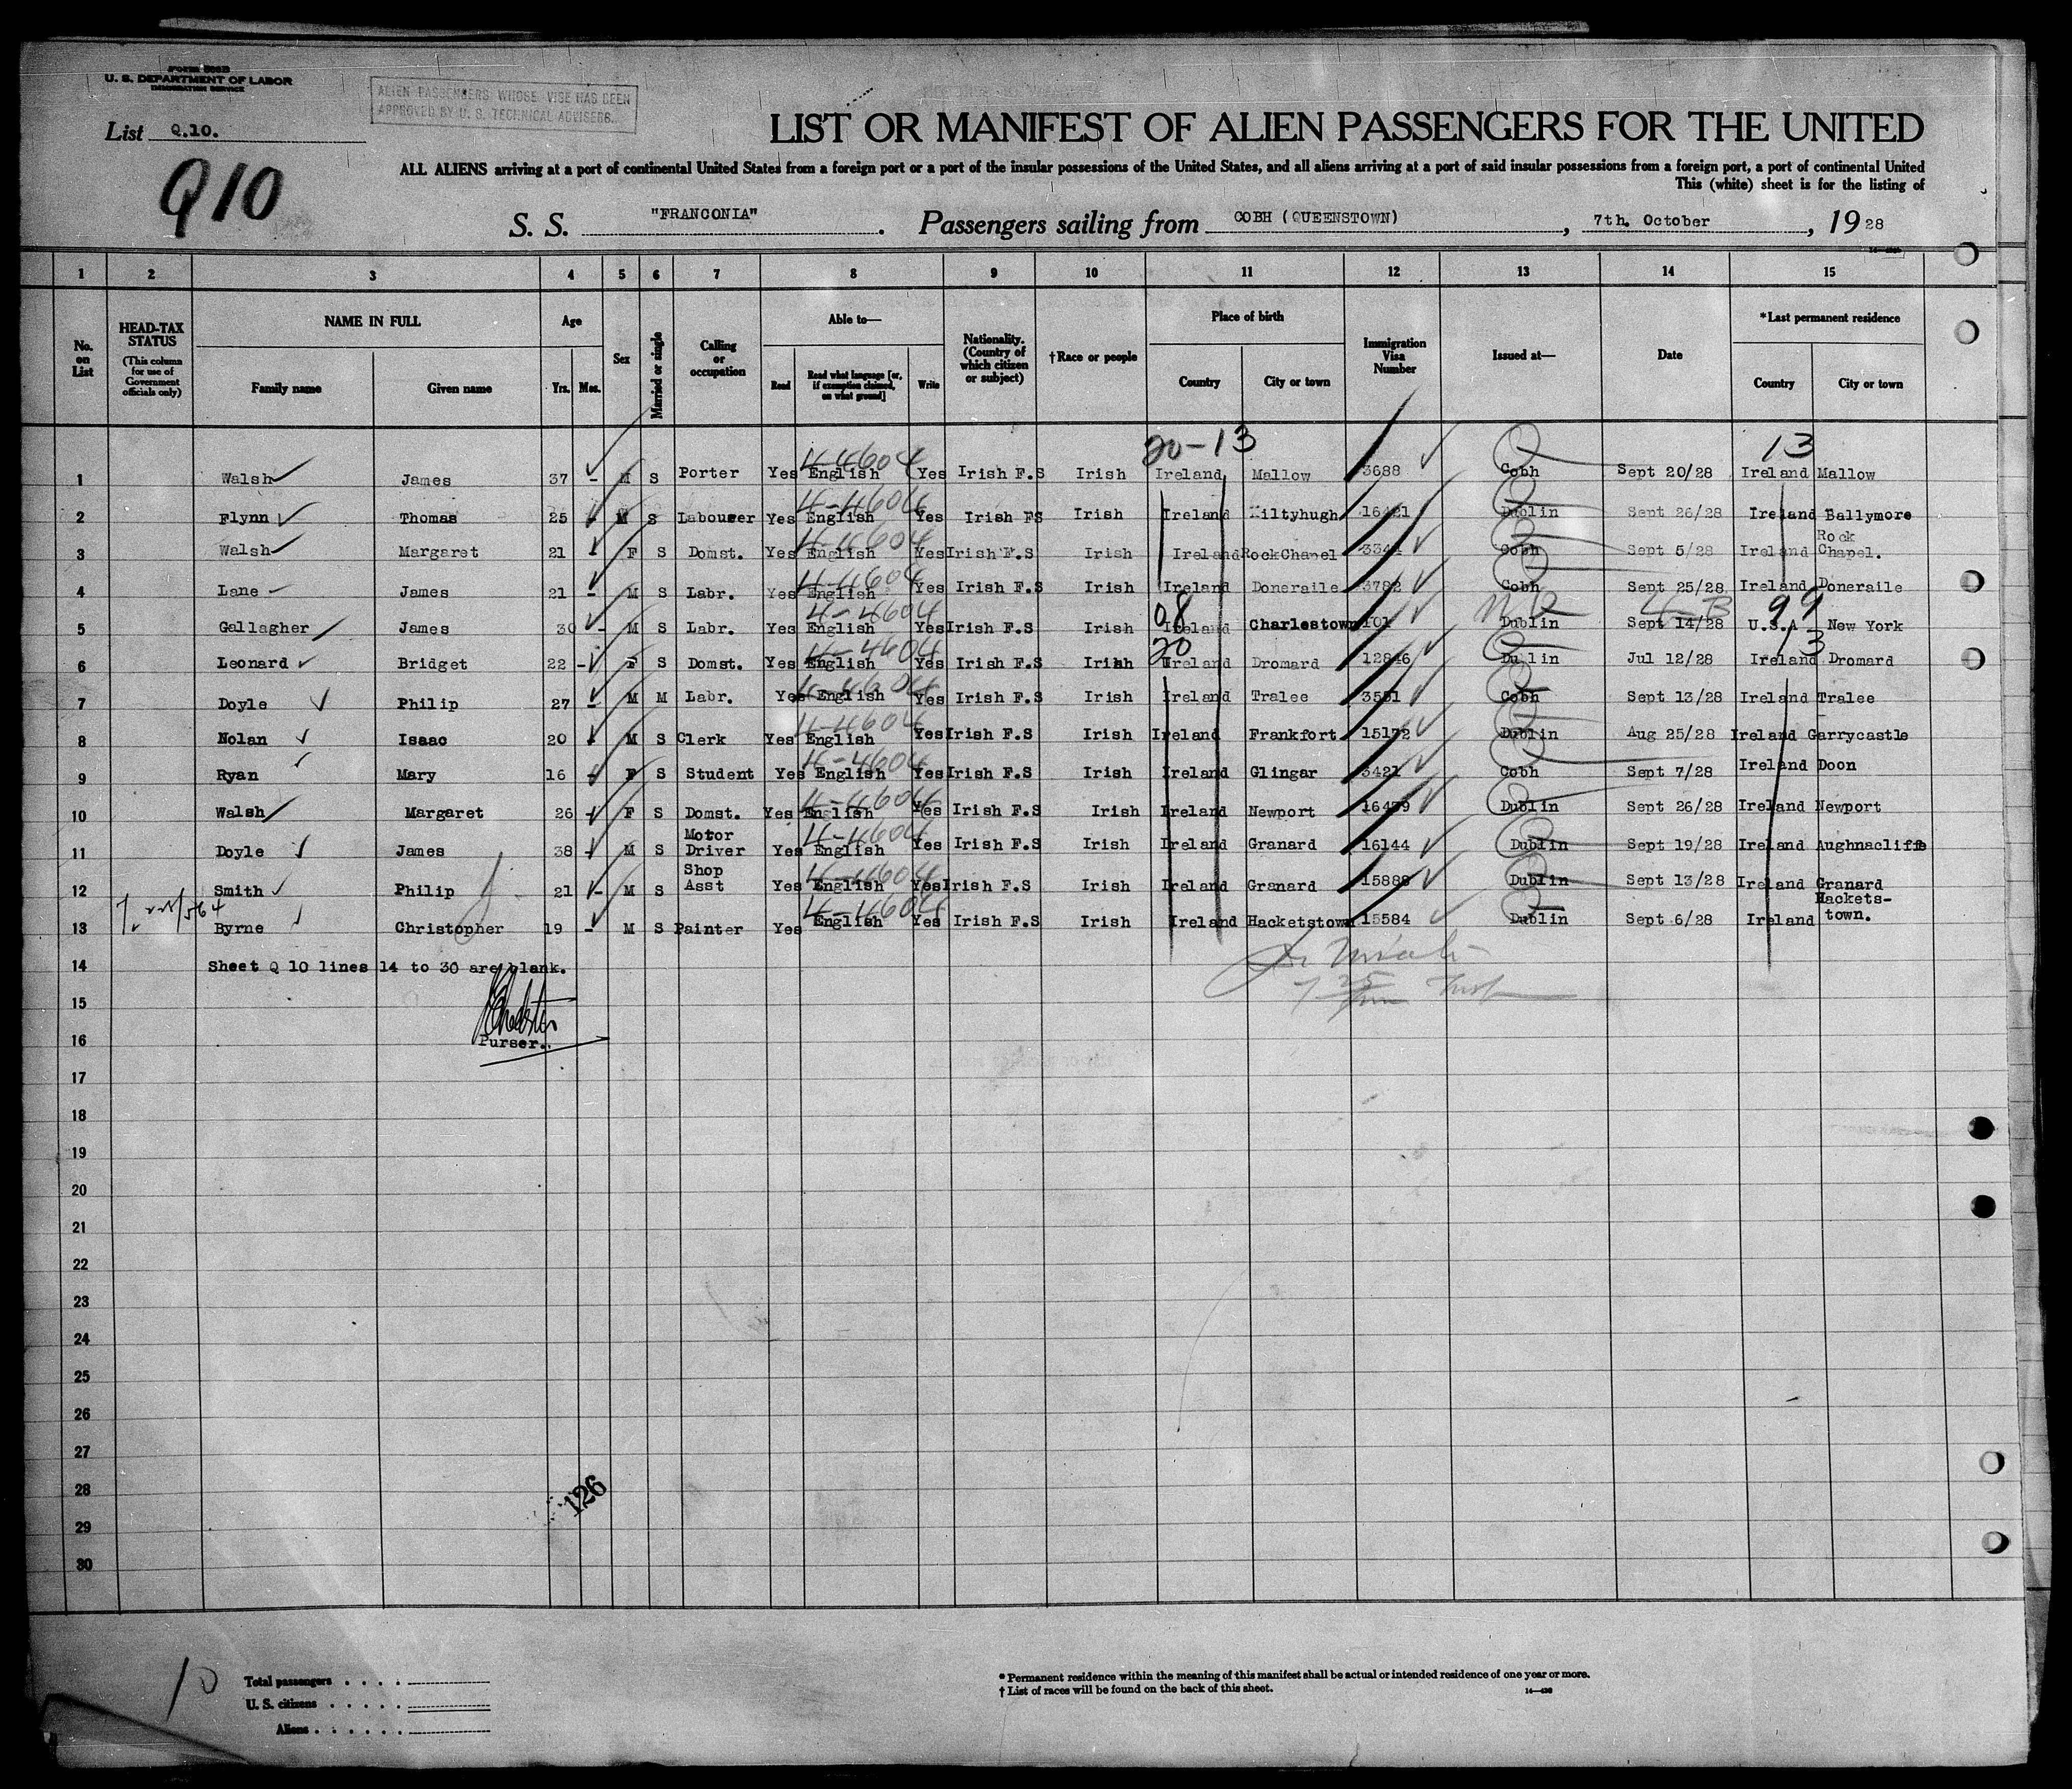 Form 500B
U. S. DEPARTMENT OF LABOR
IMMIGRATION SERVICE
ALIEN PASSENGERS WHOSE VISE HAS BEEN
APPROVED BY U. S. TECHNICAL ADVISERS.
List Q.10.
Q10
LIST OR MANIFEST OF ALIEN PASSENGERS FOR THE UNITED
ALL ALIENS arriving at a port of continental United States from a foreign port or a port of the insular possessions of the United States, and all aliens arriving at a port of said insular possessions from a foreign port, a port of continental United
This (white) sheet is for the listing of
S. S. "FRANCONIA". Passengers sailing from COBH (QUEENSTOWN), 7th. October, 1928
1 2 3 4 5 6 7 8 9 10 11 12 13 14 15
No. on List
HEAD-TAX STATUS (This column for use of Government officials only)
NAME IN FULL
Family name Given name
Age
Yrs. Mos.
Sex
Married or single
Calling or occupation
Able to—
Read Read what language [or, if exemption claimed, on what ground] Write
Nationality. (Country of which citizen or subject)
†Race or people
Place of birth
Country City or town
Immigration Visa Number
Issued at—
Date
*Last permanent residence
Country City or town
20-13 13
1 Walsh James 37 - M S Porter Yes English 4-4604 Yes Irish F.S Irish Ireland Mallow 3688 Cobh Sept 20/28 Ireland Mallow
2 Flynn Thomas 25 - M S Labourer Yes English 4-4604 Yes Irish FS Irish Ireland Kiltyhugh 16421 Dublin Sept 26/28 Ireland Ballymore
3 Walsh Margaret 21 - F S Domst. Yes English 4-4604 Yes Irish F.S Irish Ireland RockChapel 3344 Cobh Sept 5/28 Ireland Rock Chapel.
4 Lane James 21 - M S Labr. Yes English 4-4604 Yes Irish F.S Irish Ireland Doneraile 3782 Cobh Sept 25/28 Ireland Doneraile
08 4-B 99
5 Gallagher James 30 - M S Labr. Yes English 4-4604 Yes Irish F.S Irish Ireland Charlestown 101 Dublin Sept 14/28 U.S.A New York
20 13
6 Leonard Bridget 22 - F S Domst. Yes English 4-4604 Yes Irish F.S Irish Ireland Dromard 12846 Dublin Jul 12/28 Ireland Dromard
7 Doyle Philip 27 - M M Labr. Yes English 4-4604 Yes Irish F.S Irish Ireland Tralee 3551 Cobh Sept 13/28 Ireland Tralee
8 Nolan Isaac 20 - M S Clerk Yes English 4-4604 Yes Irish F.S Irish Ireland Frankfort 15172 Dublin Aug 25/28 Ireland Garrycastle
9 Ryan Mary 16 - F S Student Yes English 4-4604 Yes Irish F.S Irish Ireland Glingar 3421 Cobh Sept 7/28 Ireland Doon
10 Walsh Margaret 26 - F S Domst. Yes English 4-4604 Yes Irish F.S Irish Ireland Newport 16479 Dublin Sept 26/28 Ireland Newport
11 Doyle James 38 - M S Motor Driver Yes English 4-4604 Yes Irish F.S Irish Ireland Granard 16144 Dublin Sept 19/28 Ireland Aughnacliffe
12 Smith Philip 21 - M S Shop Asst Yes English 4-4604 Yes Irish F.S Irish Ireland Granard 15888 Dublin Sept 13/28 Ireland Granard
13 Byrne Christopher 19 - M S Painter Yes English 4-4604 Yes Irish F.S Irish Ireland Hacketstown 15584 Dublin Sept 6/28 Ireland Hackets-town.
14 Sheet Q 10 lines 14 to 30 are blank.
15
16 Purser.
17
18
19
20
21
22
23
24
25
26
27
28
126
29
30
10
Total passengers
U. S. citizens
Aliens
* Permanent residence within the meaning of this manifest shall be actual or intended residence of one year or more.
† List of races will be found on the back of this sheet.
14-430